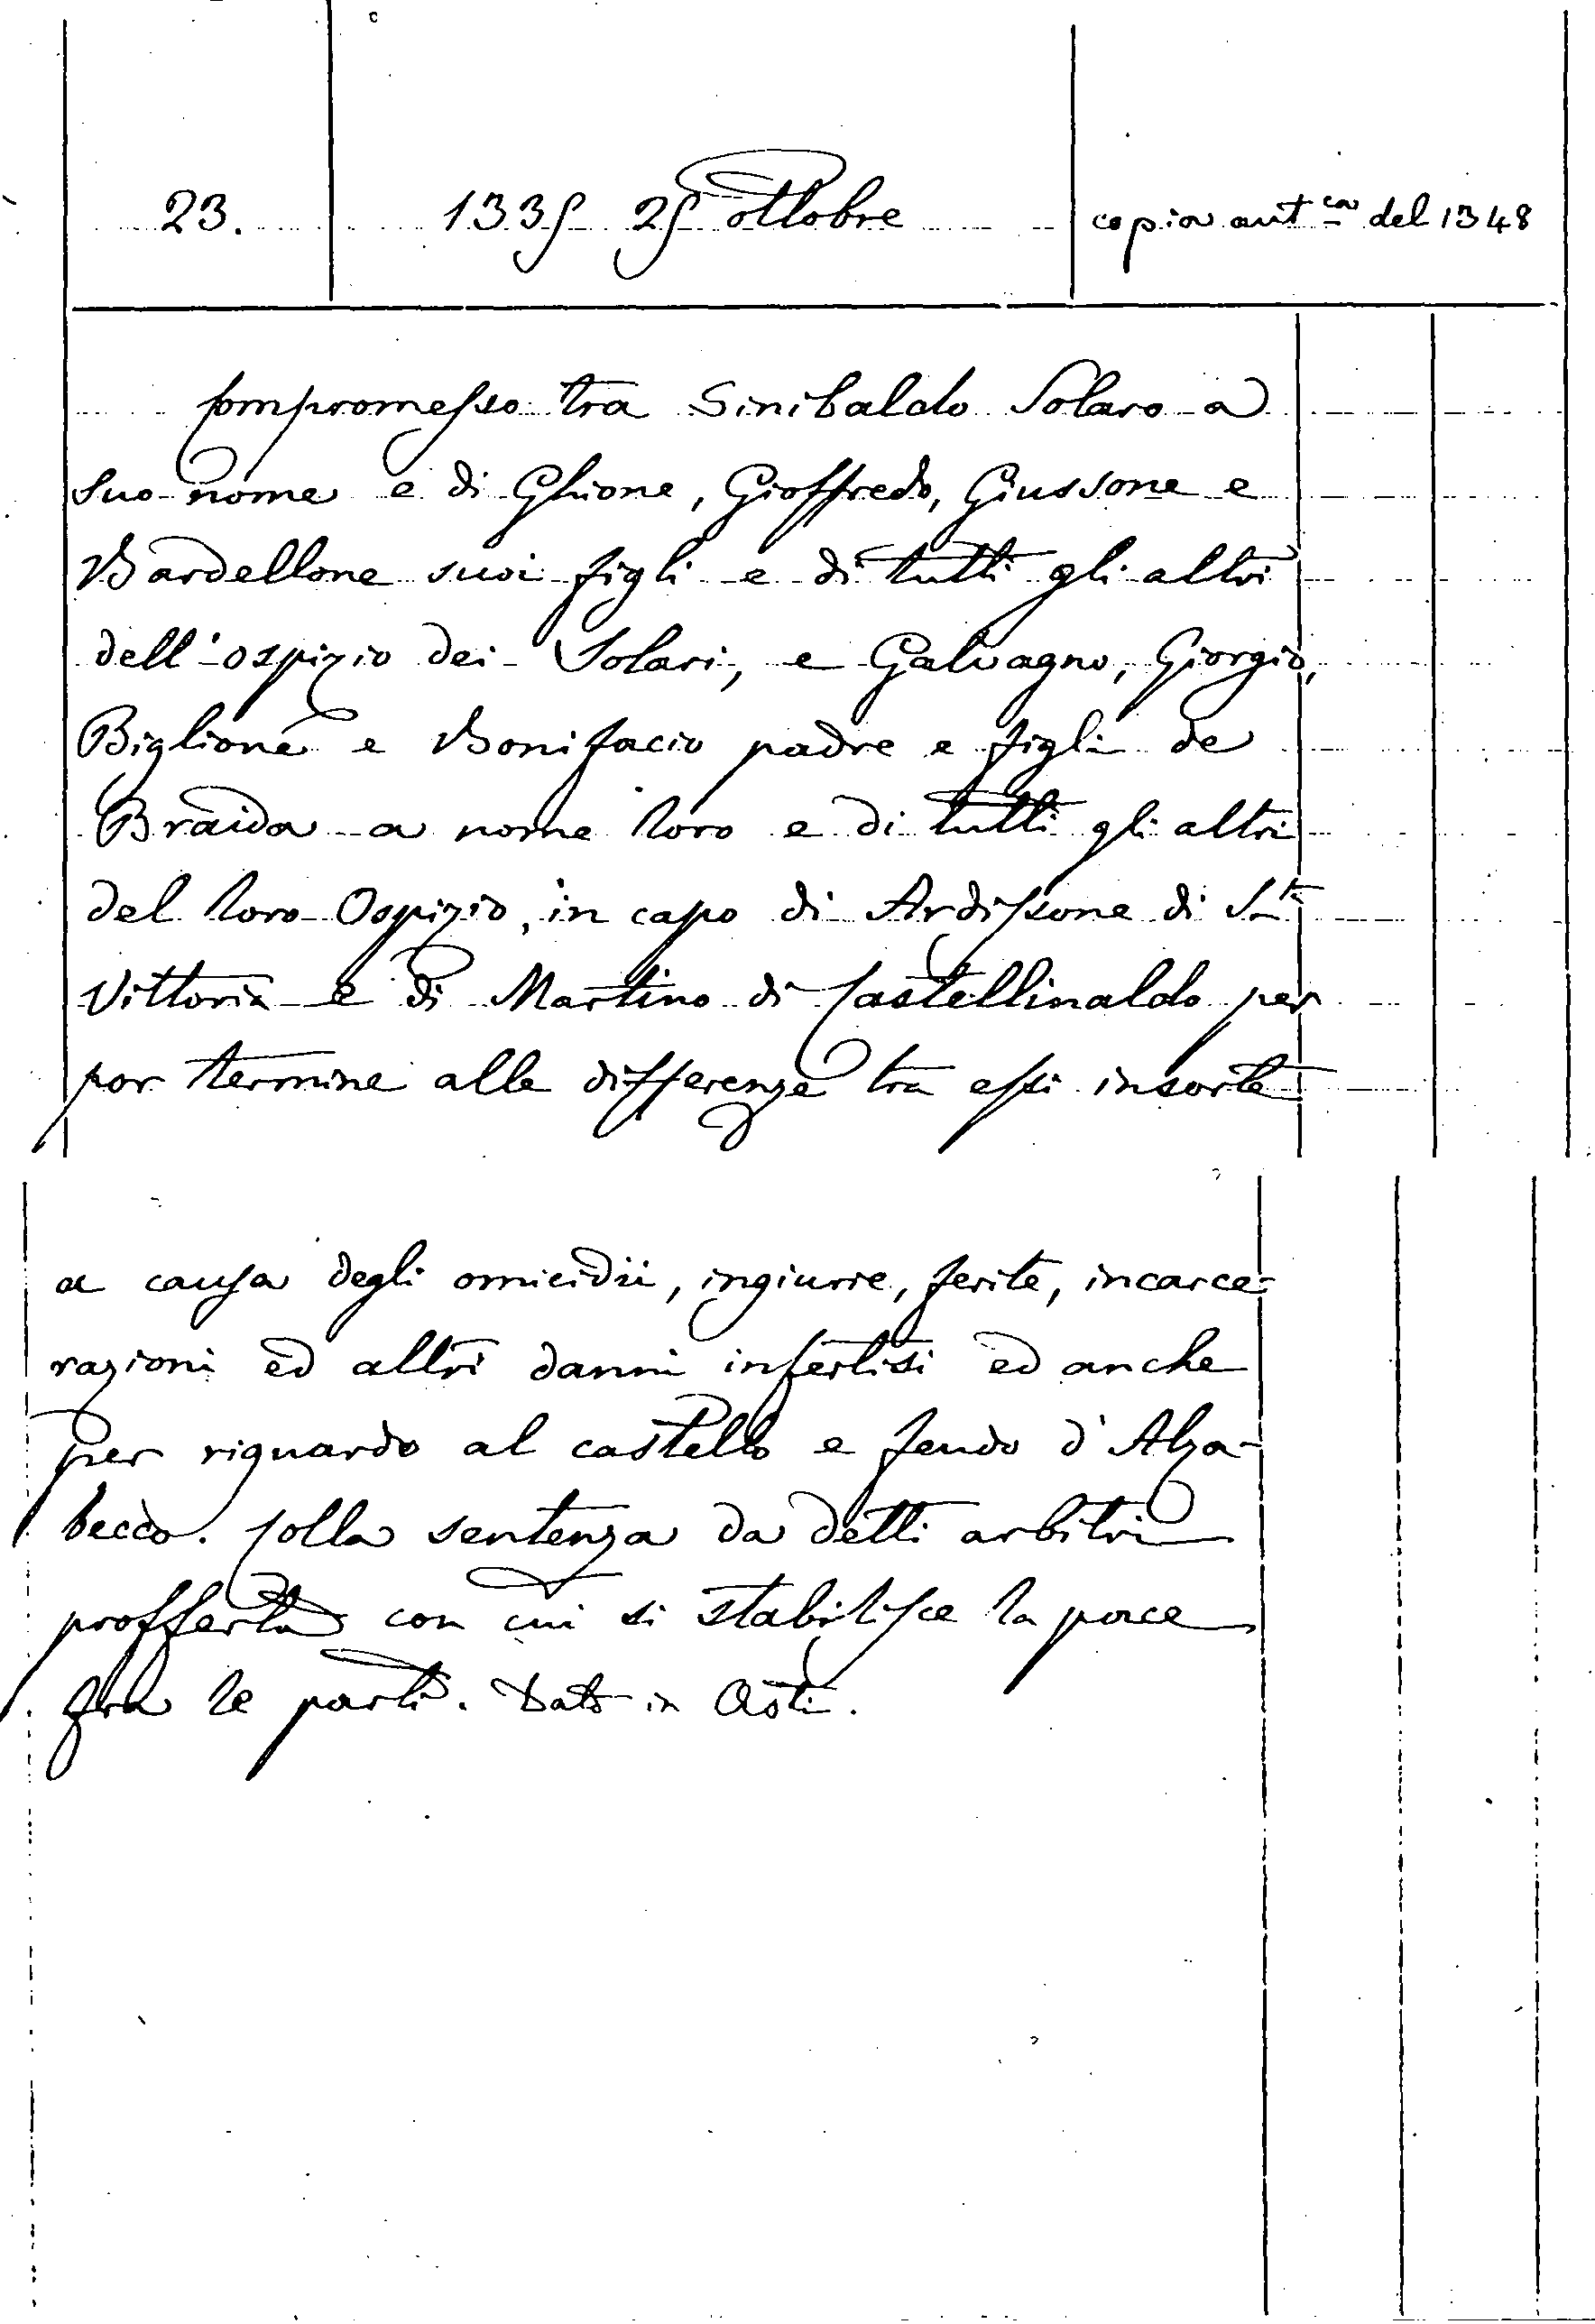 23. 1335 25 ottobre copia aut.ca del 1348
Compromesso tra Sinibaldo Solaro a
suo nome e di Ghione, Gioffredo, Giussone e
Bardellone suoi figli e di tutti gli altri
dell'ospizio dei Solari, e Galvagno, Giorgio,
Biglione e Bonifacio padre e figli de
Braida a nome loro e di tutti gli altri
del loro Ospizio, in capo di Ardissone di S.ta
Vittoria e di Martino di Castellinaldo per
por termine alle differenze tra essi insorte
a causa degli omicidii, ingiurie, ferite, incarce-
razioni ed altri danni infertisi ed anche
per riguardo al castello e feudo d'Alza-
becco. Colla sentenza da detti arbitri
profferta con cui si stabilisce la pace
fra le parti. Dato in Asti.